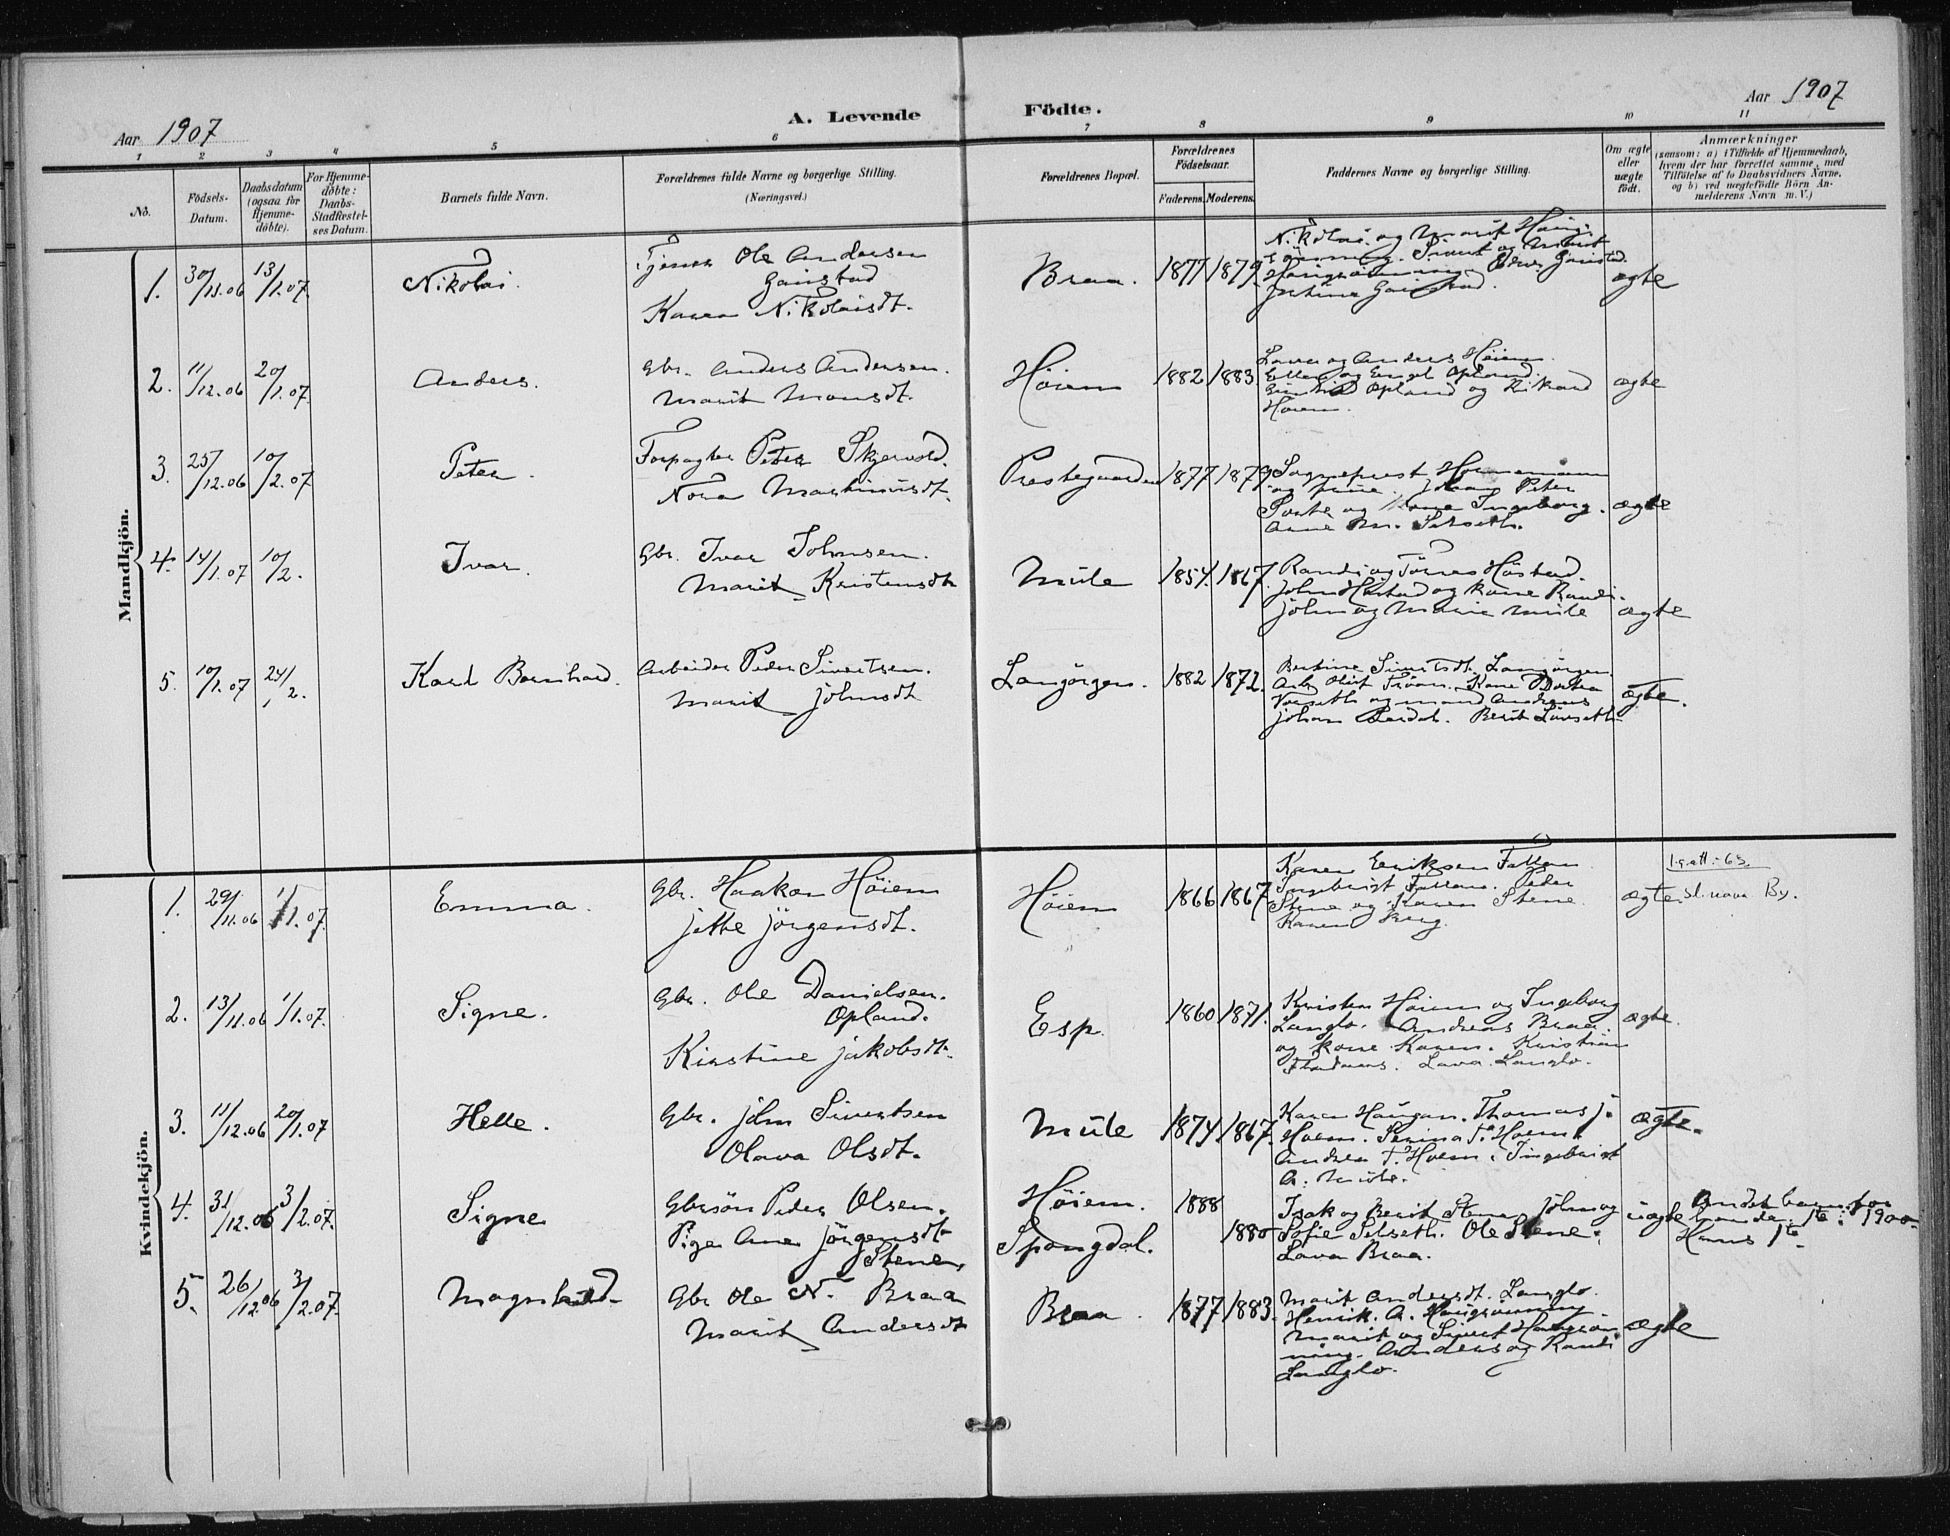 Aar 1907
A. Levende Födte.
Aar 1907
1 2 3 4 5 6 7 8 9 10 11
No.
Födsels-
Datum.
Daabsdatum
(ogsaa for
Hjemme-
døbte).
For Hjemme-
døbte:
Daabs-
Stadfæstel-
ses Datum.
Barnets fulde Navn.
Forældrenes fulde Navne og borgerlige Stilling.
(Næringsvei.)
Forældrenes Bopæl.
Forældrenes
Födselsaar.
Faderens. Moderens.
Faddernes Navne og borgerlige Stilling.
Om ægte
eller
uægte
født.
Anmærkninger
(saasom: a) i Tilfælde af Hjemmedaab,
hvem der har forrettet samme, med
Tilføielse af to Daabsvidners Navne,
og b) ved uægtefødte Børn An-
melderens Navn m. V.)
Mandkjön.
1. 30/11.06 13/1.07. Nikolai.
Tjener Ole Andersen
Gaustad
Karen Nikolaisdt.
Braa. 1877 1879.
Nikolai og Marit
ægte
2. 11/12.06 20/1.07. Anders.
Gbr. Anders Andersen.
Marit Monsdt.
Höiem 1882 1883.
Lava og Anders Höiem.
Ellen og Engel Opland.
Opland og Rikard
Hoiem.
ægte
3. 25/12.06 10/2.07 Peter.
Forpagter Peter Skjervold.
Nora Martinusdt.
Prestegaarden 1877 1879
Sogneprest Hornemann
og frue. Johan Peter
og Kone Ingeborg.
Anne M. Selseth.
ægte
4. 14/1.07 10/2. Ivar.
Gbr. Ivar Johnsen.
Marit Kristensdt.
Mule 1854. 1867.
Randi og Törres Höstad.
John Höstad og kone Randi.
John og Marie Mule
ægte
5. 10/1.07 24/2. Karl Bernhard.
Arbeider Peder Sivertsen.
Marit Johnsdt
Langörgen. 1882 1872.
Bertine Sivertsdt. Langörgen.
Arb. Olof Kone Dortea
og mand Andreas
Johan Berit Lövseth.
ægte.
Kvindekjön.
1. 29/11.06 1/1.07. Emma.
Gbr. Haakon Höiem
Jette Jörgensdt.
Höiem 1866 1867
Karen Eriksen
Ingebrigt Peder
Stene og Karen Stene.
Karen Berg.
ægte.
By.
2. 13/11.06 1/1.07. Signe.
Gbr. Ole Danielsen.
Opland.
Kirstine Jakobsdt.
Esp. 1860 1871.
Kristen Höiem og Ingeborg
Langlo. Andreas Braa.
og kone Karen. Kristian
Lava Langlo.
ægte.
3. 11/12.06 20/1.07 Helle.
Gbr. John Sivertsen
Olava Olsdt.
Mule 1874 1867.
Karen Haugan. Thomas J.
Hoem. Serina T. Hoem.
Andrea T. Hoem. Ingebrigt
A. Mule.
ægte.
4. 31/12.06 3/2.07. Signe
Gbrsön Peder Olsen.
Pige Ane Jörgensdt
Stene.
Höiem.
Spongdal.
1888
1880
Isak og Berit Stene John og
Sofie Selseth. Ole Stene.
Lava Braa.
uægte
Andet barn for
hende. 1ste: 1900.
Hans 1ste.
5. 26/12.06 3/2.07. Magnhild.
Gbr Ole N. Braa
Marit Andersdt
Braa. 1877 1883.
Marit Andersdt. Langlo.
Henrik. A. Haugrönning.
Marit og Sivert Haugrön-
ning. Anders og Randi
Langlo.
ægte